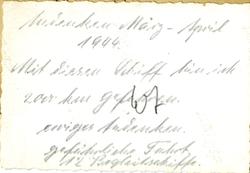 Andenken März - April
1944.
Mit diesen Schiff bin ich
200 km gefahren.
67
ewiges Andenken.
gefährliche Fahrt
12 Begleitschiffe.